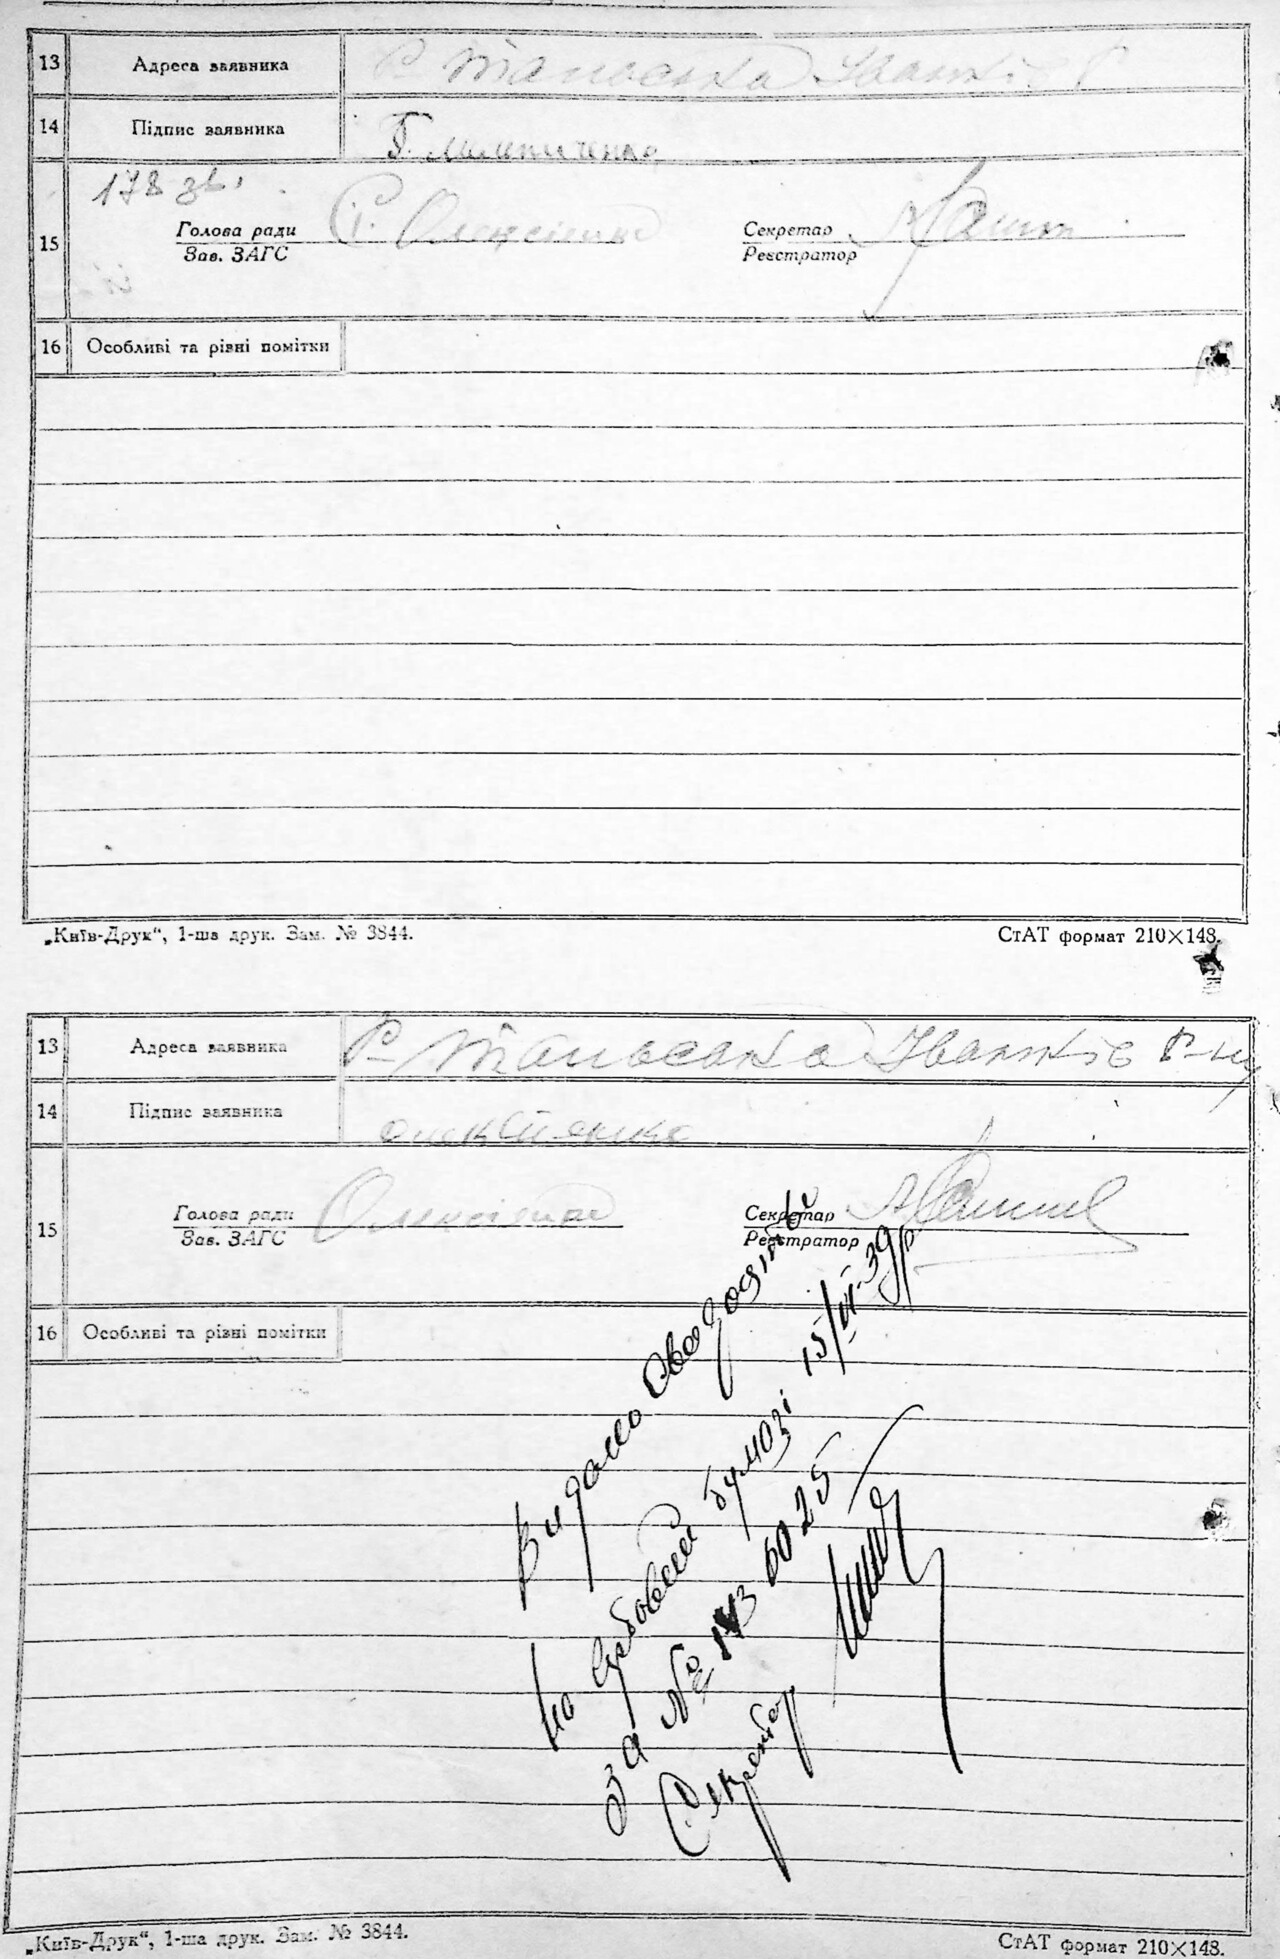 13 Адреса заявника Р- Талъська Іванків Р
14 Підпис заявника
178 зв.
15 Голова ради Олексієнко Секретар
Зав. ЗАГС Реєстратор
16 Особливі та різні помітки
„Київ-Друк“, 1-ша друк. Зам. № 3844. СтАТ формат 210×148.
13 Адреса заявника Р- Талъська Іванків Р-ну
14 Підпис заявника Олексієнко
15 Голова ради Олексієнко Секретар
Зав. ЗАГС Реєстратор
16 Особливі та різні помітки
Видано
на гербовій бумозі 15/VI-39р.
за № 6025
Секретар
„Київ-Друк“, 1-ша друк. Зам. № 3844. СтАТ формат 210×148.